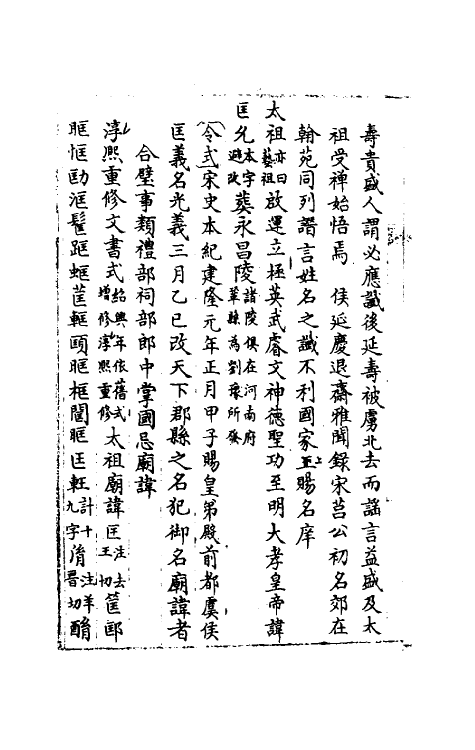 壽貴盛人謂必應讖後延壽被虜北去而謡言益盛及太
祖受禪始悟焉　侯延慶退齋雅聞錄宋莒公初名郊在
翰苑同列譖言姓名之讖不利國家上賜名庠
太祖亦曰藝祖啟運立極英武睿文神德聖功至明大孝皇帝諱
匡允本字避改葬永昌陵諸陵俱在河南府鞏縣為劉豫所發
令式宋史本紀建隆元年正月甲子賜皇弟殿前都虞侯
匡義名光義三月乙巳改天下郡縣之名犯御名廟諱者
合璧事類禮部祠部郎中掌國忌廟諱
淳熙重修文書式紹興年依舊式增修淳熙重修太祖廟諱匡注去王切筐邼
眶恇劻洭鬔距蛭茞軭頤眶框閶眶匞軖計十九字胤注羊晋切酳